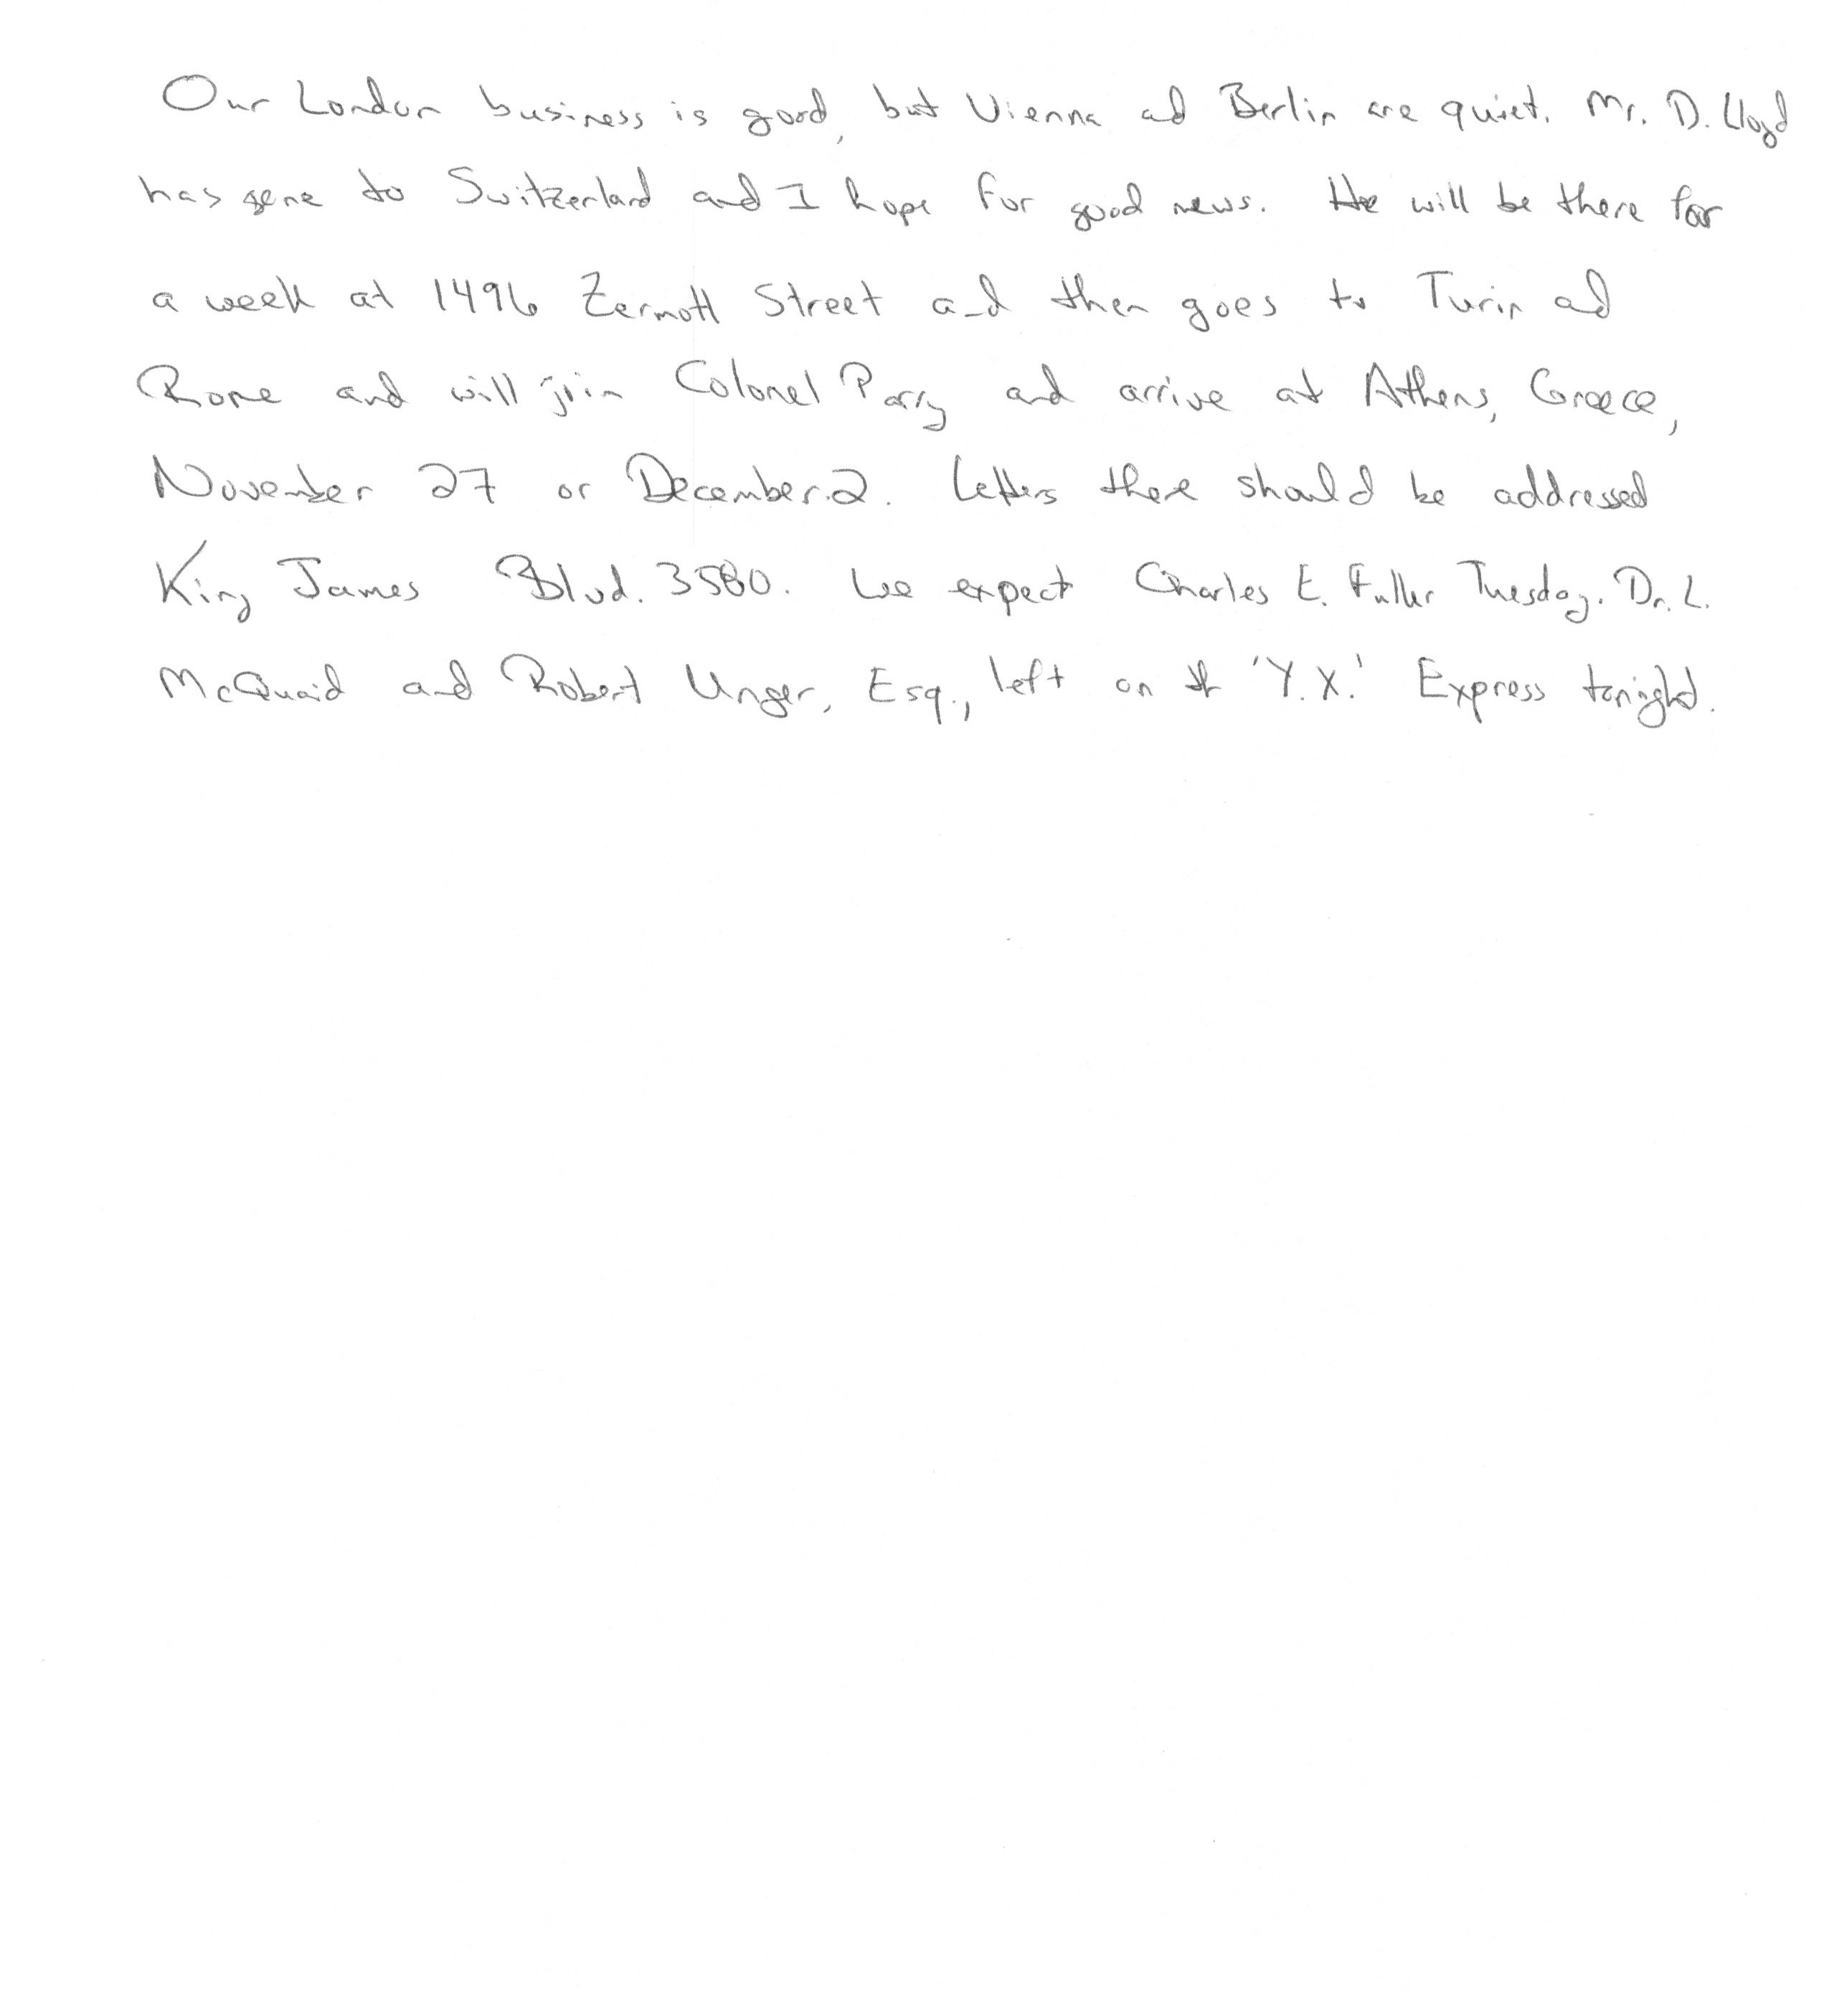 Our London business is good, but Vienna and Berlin are quiet. Mr. D. Lloyd
has gone to Switzerland and I hope for good news. He will be there for
a week at 1496 Zermott Street and then goes to Turin and
Rome and will join Colonel Parry and arrive at Athens, Greece,
November 27 or December 2. Letters there should be addressed
King James Blvd. 3580. We expect Charles E. Fuller Tuesday. Dr. L.
McQuaid and Robert Unger, Esq., left on the 'Y.X.' Express tonight.